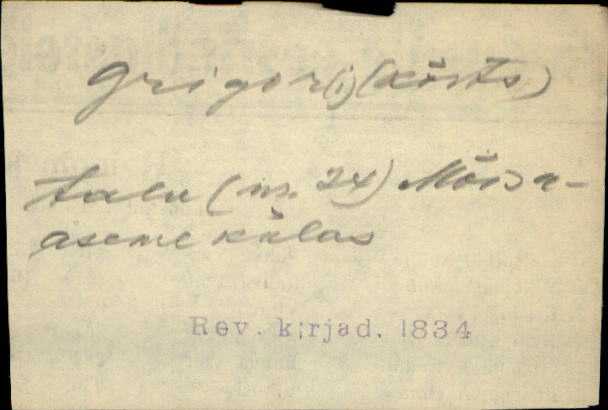 Grigor(i) (Kõrts)
talu (nr. 24) Mõisa-
aseme külas
Rev. kirjad. 1834